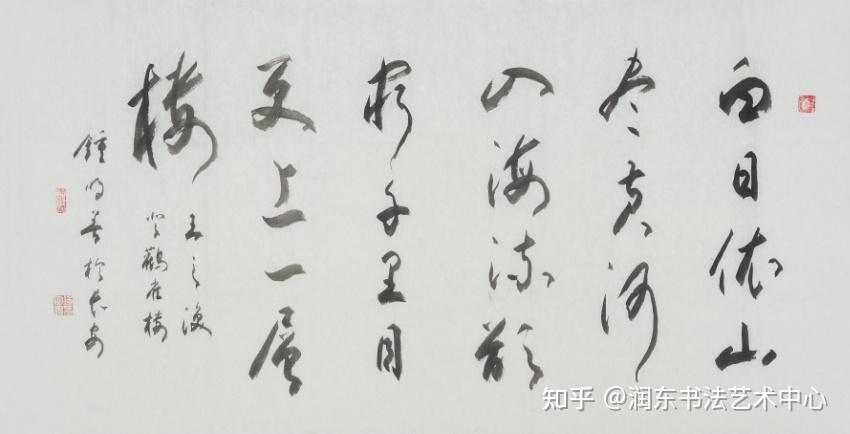 白日依山
尽黄河
入海流欲
窮千里目
更上一層
楼
王之涣
登鸛雀楼
鍾明善於长安
知乎 @润东书法艺术中心